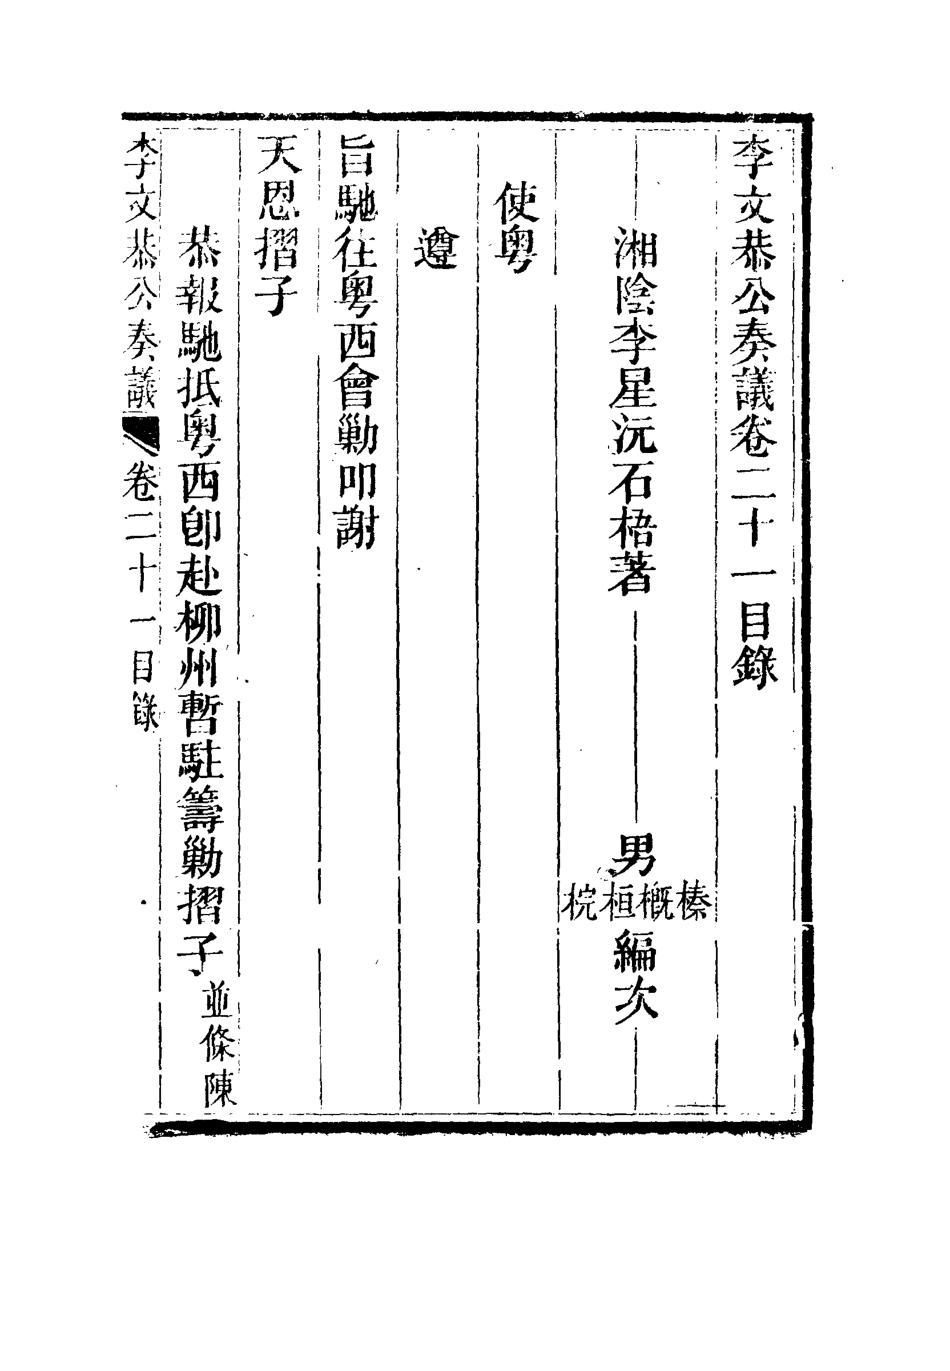 李文恭公奏議卷二十一目錄
湘陰李星沅石梧著
男
榛
概
桓
梡
編次
使粵
遵
旨馳往粵西會勦叩謝
天恩摺子
恭報馳抵粵西卽赴柳州暫駐籌勦摺子 並條陳
李文恭公奏議 卷二十一目錄